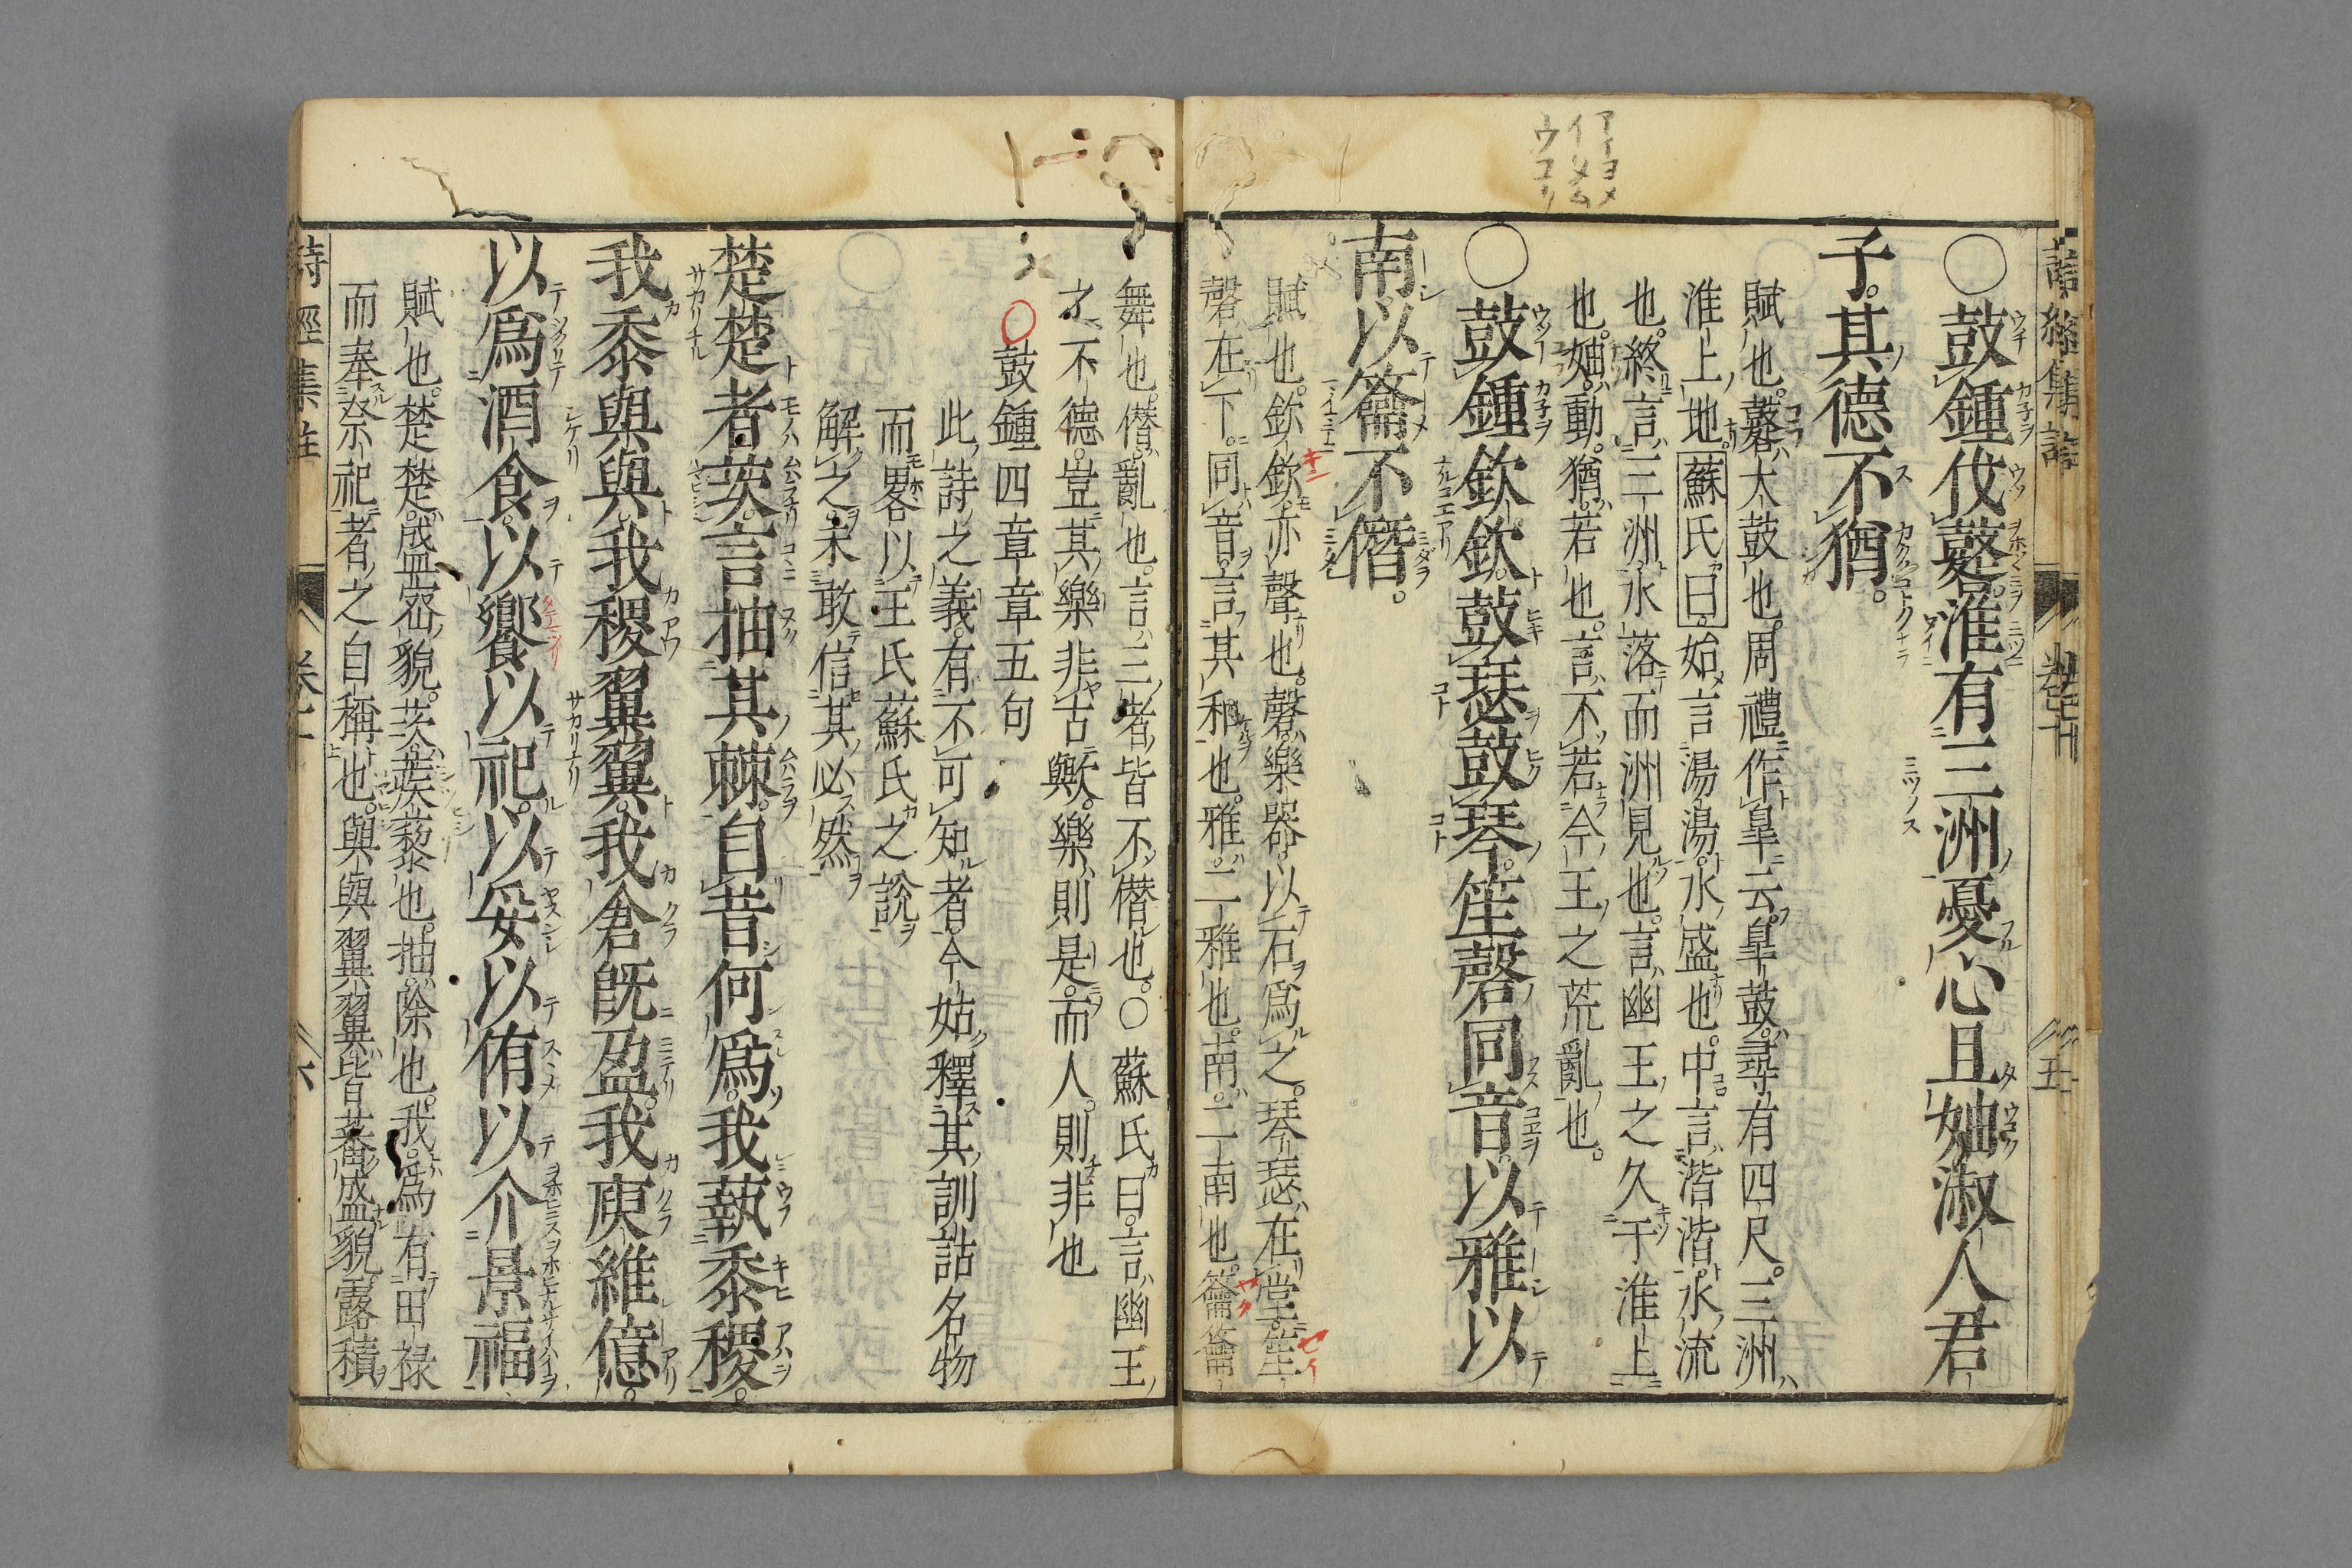 〇鼓鍾伐鼛淮有三洲憂心且妯淑人君
子其德不猶
賦也鼛大鼓也周禮作皐云皐鼓尋有四尺三洲
淮上地蘇氏曰始言湯湯水盛也中言湝湝水流
也終言三洲水落而洲見也言幽王之久于淮上
也妯動猶若也言不若今王之荒亂也
〇鼓鍾欽欽鼓瑟鼓琴笙磬同音以雅以
南以籥不僭
賦也欽欽亦聲也磬樂器以石爲之琴瑟在堂笙
磬在下同音言其和也雅二雅也南二南也籥籥
舞也僭亂也言三者皆不僭也〇蘇氏曰言幽王
之不德豈其樂非古歟樂則是而人則非也
鼓鍾四章章五句
此詩之義有不可知者今姑釋其訓詁名物
而畧以王氏蘇氏之說
解之未敢信其必然
楚楚者茨言抽其棘自昔何爲我蓺黍稷
我黍與與我稷翼翼我倉旣盈我庾維億
以爲酒食以饗以祀以妥以侑以介景福
賦也楚楚盛密貌茨蒺藜也抽除也我爲有田祿
而奉祭祀者之自稱也與與翼翼皆蕃盛貌露積
詩經集註 卷十 六